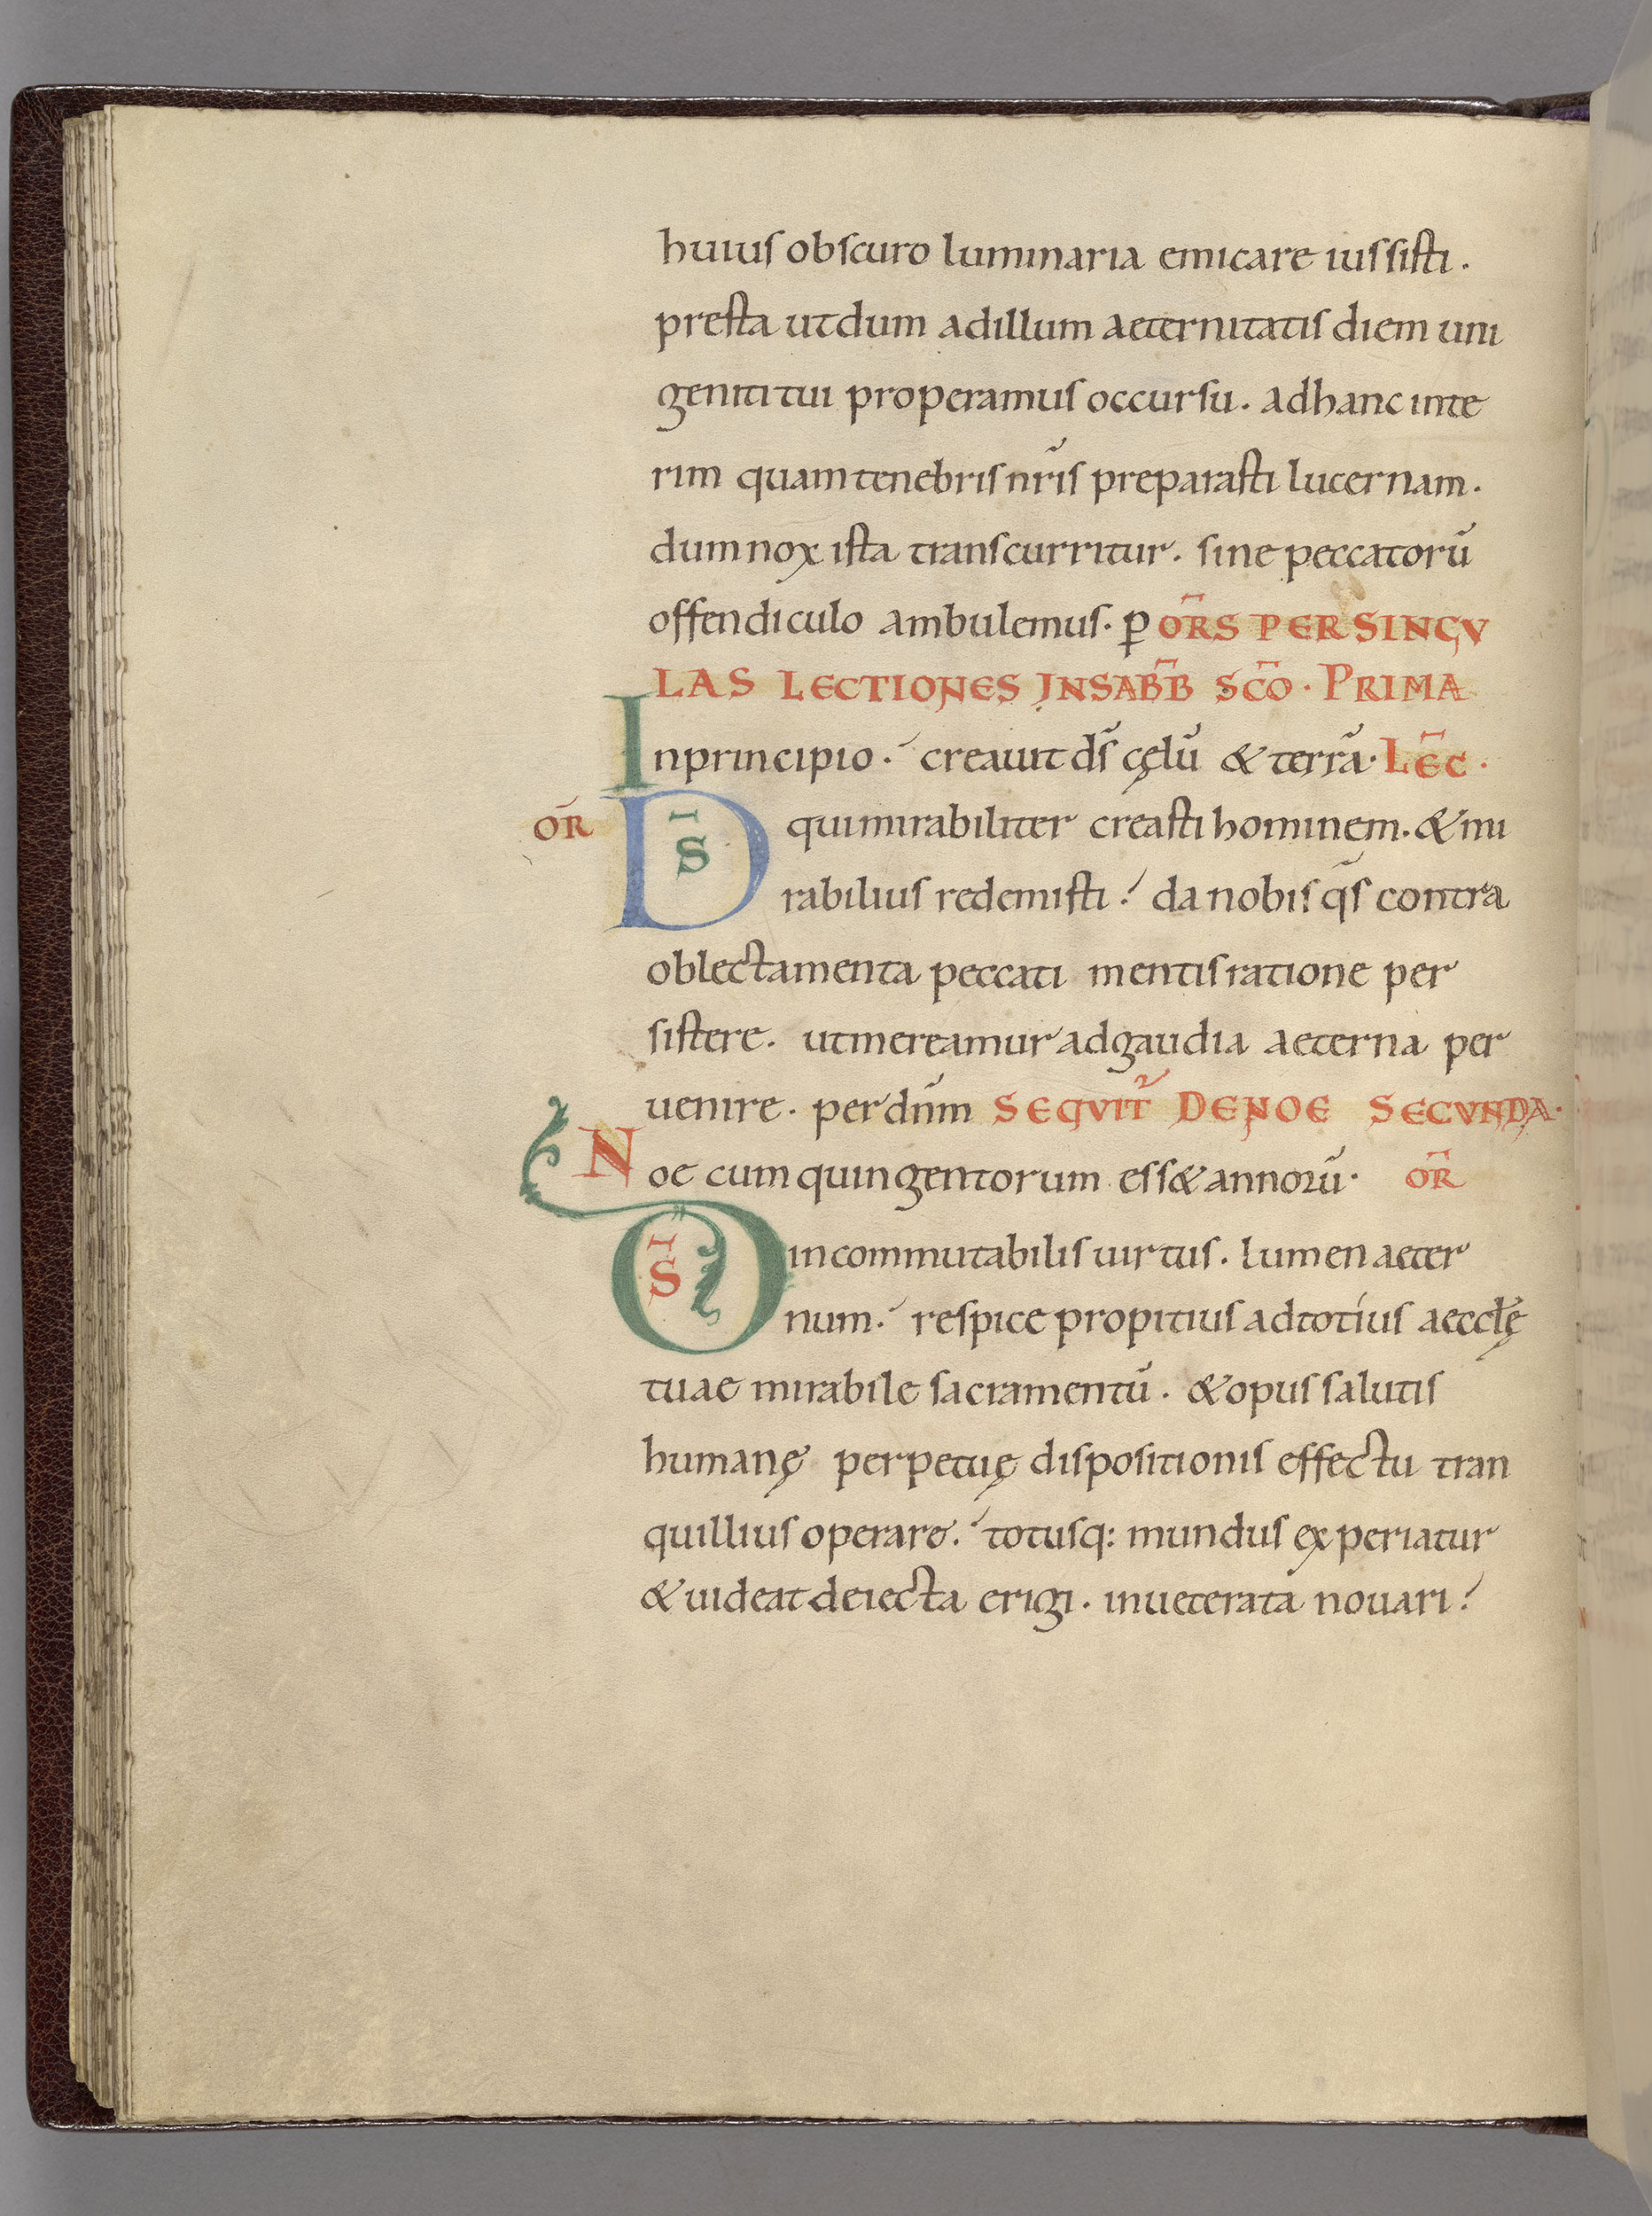 huius obscuro luminaria emicare iussisti.
presta utdum adillum aeternitatis diem uni
geniti tui properamus occursu. adhanc inte
rim quam tenebris nr̃is preparasti lucernam.
dum nox ista transcurritur. sine peccatorũ
offendiculo ambulemus. ꝑ OR̄S PER SINGV
LAS LECTIONES INSABB̄ SC̄O. PRIMA
Inprincipio. creauit ds̄ cęlũ & terrã. LĒC.
OR̄ DS̄ qui mirabiliter creasti hominem. & mi
rabilius redemisti! da nobis qs̄ contra
oblectamenta peccati mentis ratione per
sistere. utmereamur adgaudia aeterna per
uenire. per dñm SEQVIT̃ DENOE SECVNDA.
Noe cum quingentorum ess& annorũ. OR̄
DS̄ incommutabilis uirtus. lumen aeter
num. respice propitius adtotius aeccłę
tuae mirabile sacramentũ. & opus salutis
humanę perpetuę dispositionis effectu tran
quillius operare. totusq: mundus experiatur
& uideat deiecta erigi. inueterata nouari!